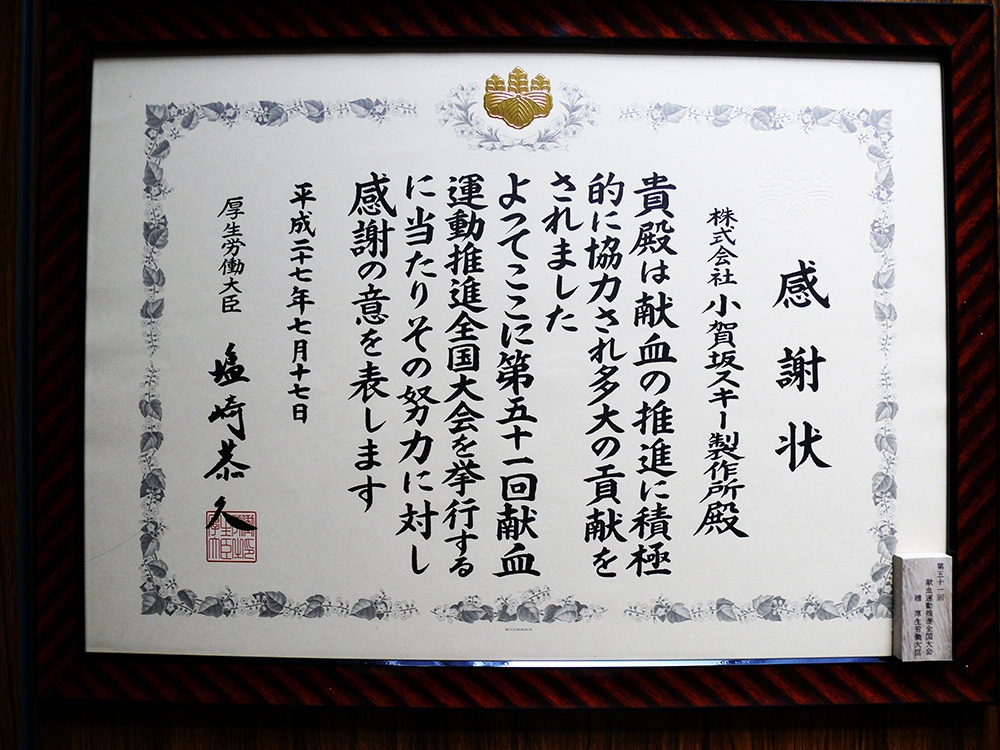 感謝状
株式会社 小賀坂スキー製作所殿
貴殿は献血の推進に積極
的に協力され多大の貢献を
されました
よってここに第五十一回献血
運動推進全国大会を挙行する
に当たりその努力に対し
感謝の意を表します
平成二十七年七月十七日
厚生労働大臣 塩崎恭久
第五十一回
献血運動推進全国大会
贈 厚生労働大臣